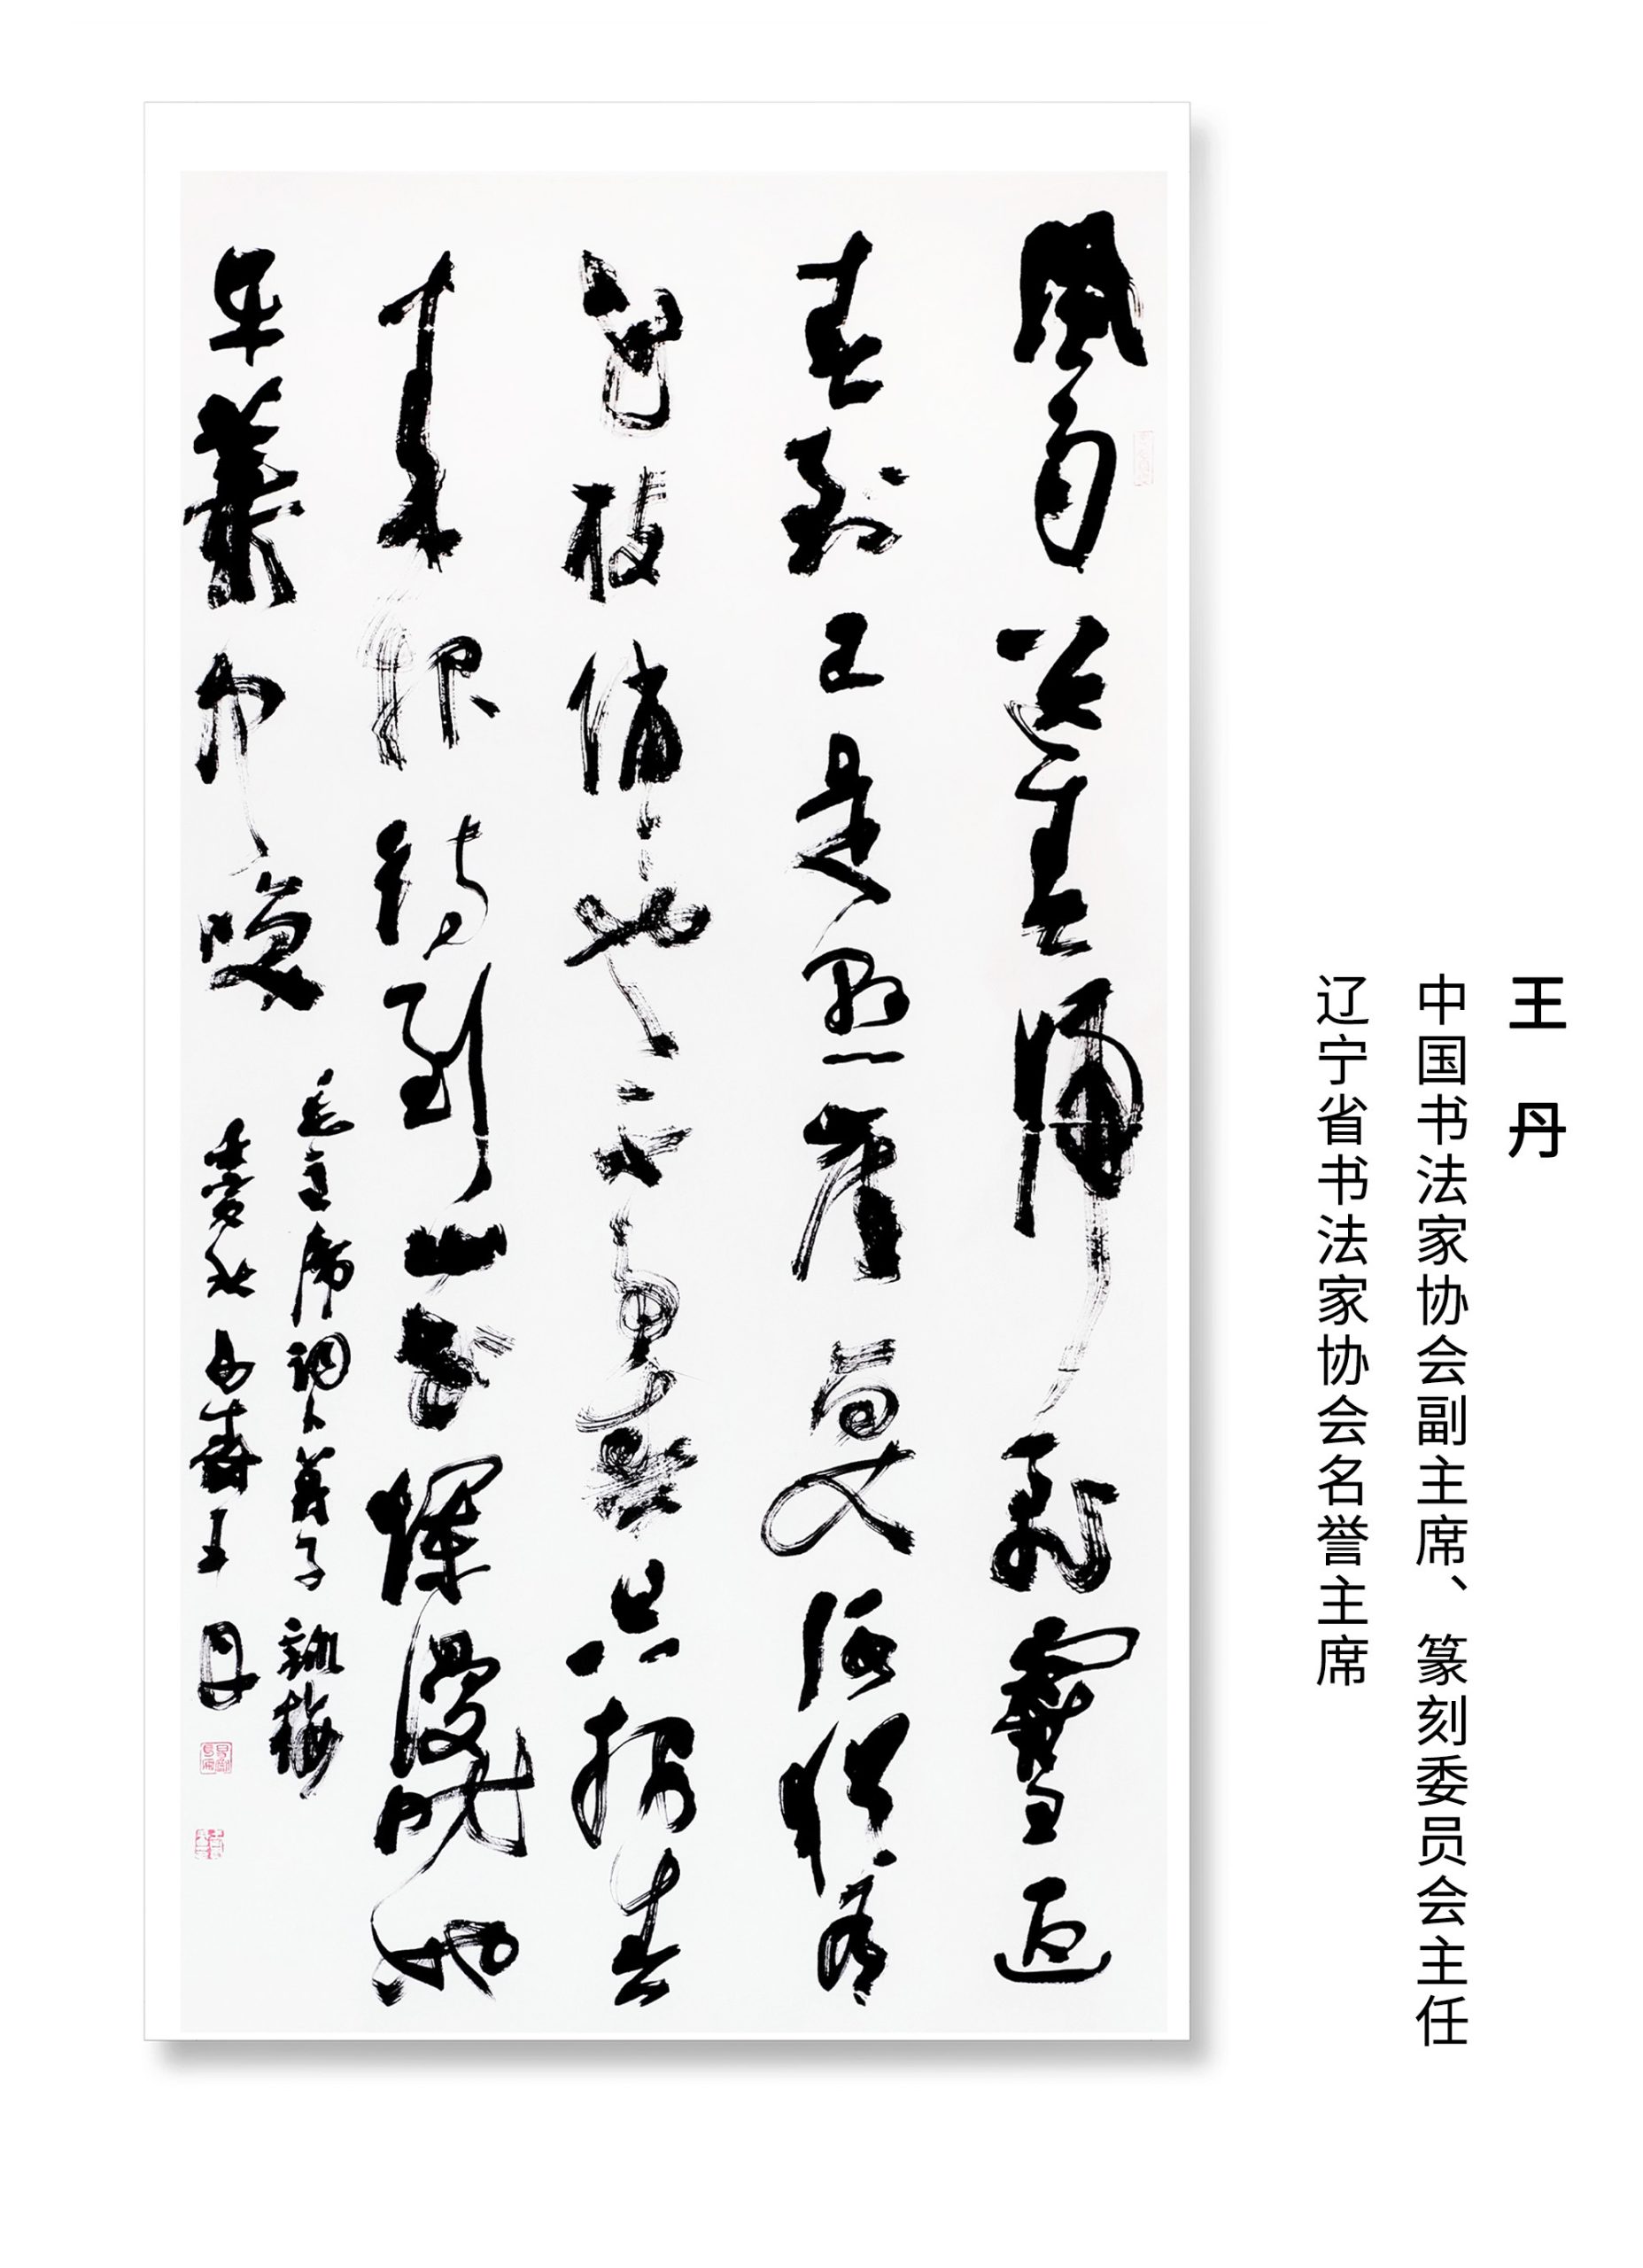 王丹
中国书法家协会副主席、篆刻委员会主任
辽宁省书法家协会名誉主席
風雨送春歸飛雪迎
春到已是懸崖百丈冰猶有
花枝俏〻也不争春只把春
来報待到山花爛漫時她
在叢中笑
毛主席詞卜算子詠梅
壬寅秋王丹